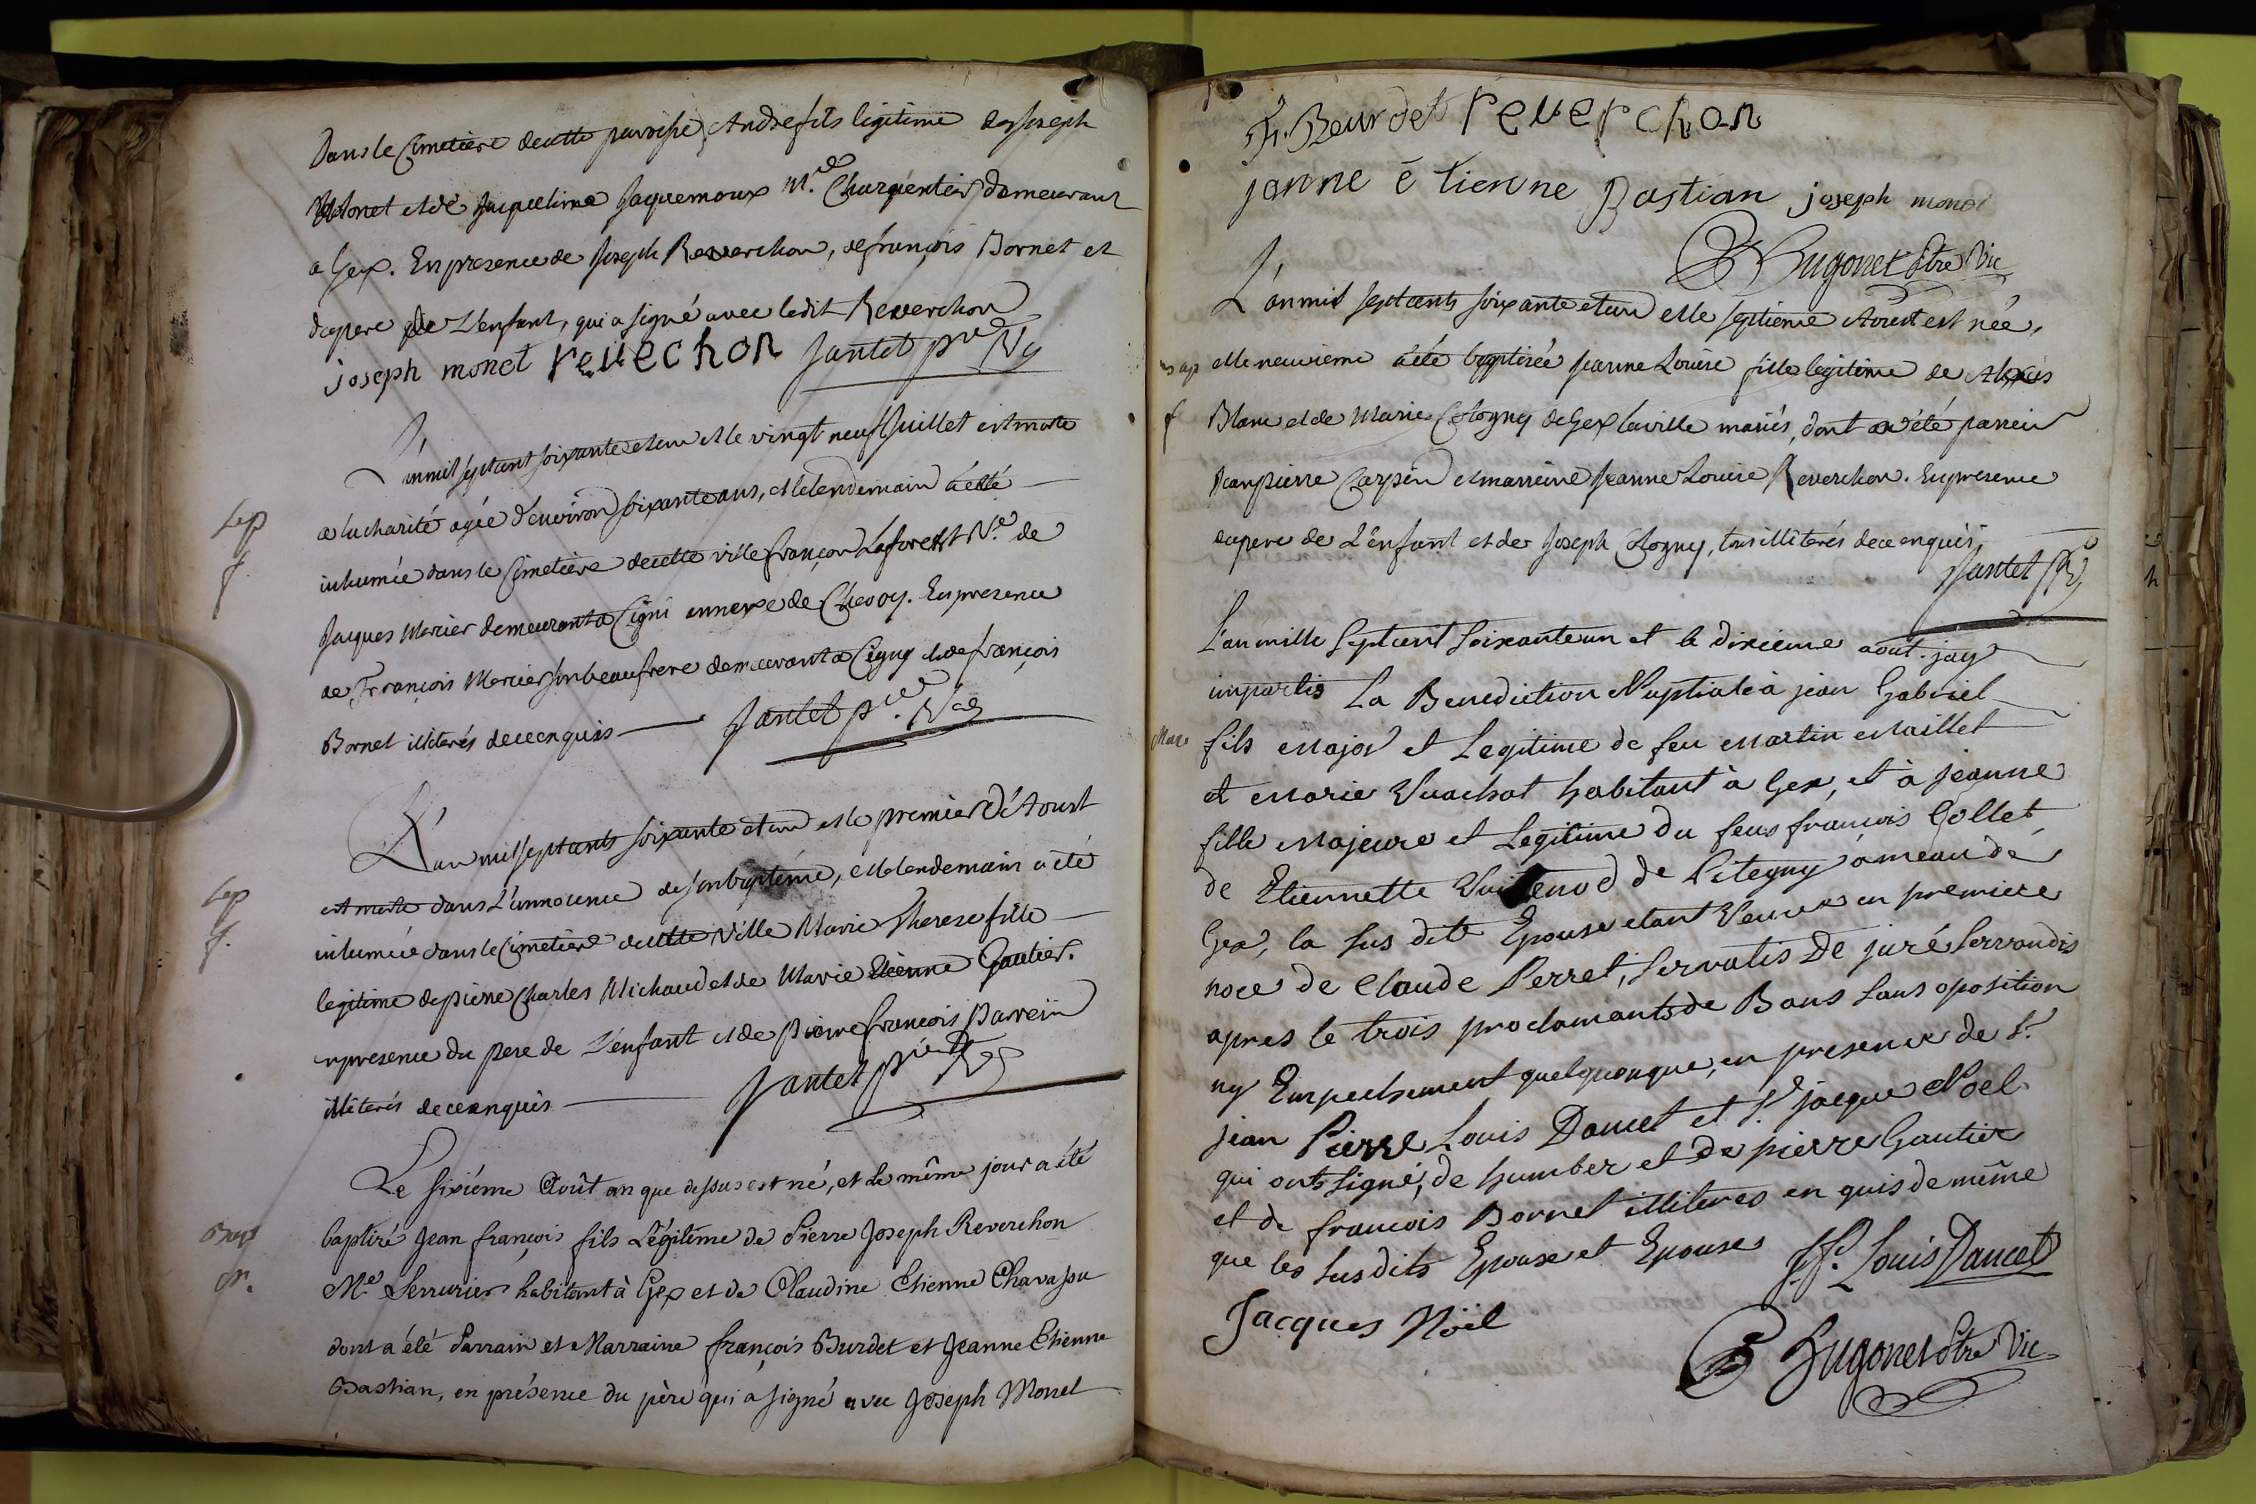 Dans le Cimetiere de cette parroisse André fils légitime de Joseph
Monet et de Jacqueline Jaquemoux M.e Charpentier demeurant
a Gex. En presence de Joseph Reverchon, de françois Bornet et
du pere de L'enfant, qui a signé avec ledit Reverchon
joseph monet reuechon Jantet p.re
L'an mil sept cent soixante et un et le vingt neuf Juillet est morte
a la charité agée d'environ soixante ans, et le lendemain a été
Sep
inhumée dans le Cimetiere de cette ville françoise Laforest V.e de
f.
Jaques Mercier demeurant a Cigni annexe de Chevry. En presence
de François Mercier son beaufrere demeurant a Cigny et de françois
Bornet illiterés de ce enquis Jantet p.re
L'an mil sept cents soixante et un et le premier d'Aoust
Sep
est morte dans L'innocence de son baptéme, et le lendemain a été
f.
inhumée dans le Cimetiere de cette Ville Marie Therese fille
legitime de pierre Charles Michaud et de Marie Etienne Gautier.
en presence du pere de L'enfant et de pierre françois Parrein
illiterés de ce enquis Jantet p.re
Le sixiéme Août an que dessus est né, et le même jour a été
Bap
baptizé Jean françois fils Légitime de Pierre Joseph Reverchon
M.e Serrurier habitant à Gex et de Claudine Etienne Chavassu
dont a été Parrain et Marraine françois Burdet et Jeanne Etienne
Bastian, en présence du père qui a signé avec Joseph Monet
fr. Beurdet reuerchon
janne étienne Bastian joseph monet
Hugonet Ptre Vic
L'an mil sept cents soixante et un et le septieme Aoust est née,
Bap
et le neuvieme a été baptizée Jeanne Louise fille legitime de Alexis
f
Blanc et de Marie Cologny de Gex la ville mariés, dont a été parrein
Jean pierre Carpin et marreine Jeanne Louise Reverchon. En presence
du pere de L'enfant et de Joseph Cologny, tous illiterés de ce enquis.
Jantet p.re
L'an mille Sept cent Soixante un et le dixieme aout. jay
impartis La Benediction Nuptiale à jean Gabriel
Mar.
fils Major et Legitime de feu Martin Maillet
et Marie Vuachat habitant à Gex, et à jeanne
fille Majeure et Legitime du feus françois Gollet
de Etiennette de Pitegny ameau de
Gex, la sus dite Epouse etant Veuve en premiere
noce de Claude Perret, Servatis De juré Servandis
apres le trois proclamants de Bans sans oposition
ny Empechement quelquonque, en presence de S.r
jean Pierre Louis Dancet et S.r jacque Noel
qui onts signé, de humber et de pierre Gautier
et de francois Bornet illiteres en quis de même
que les susdits Epoux et Epouse J. P. Louis Dancet
Jacques Nöel
Hugonet Ptre Vic